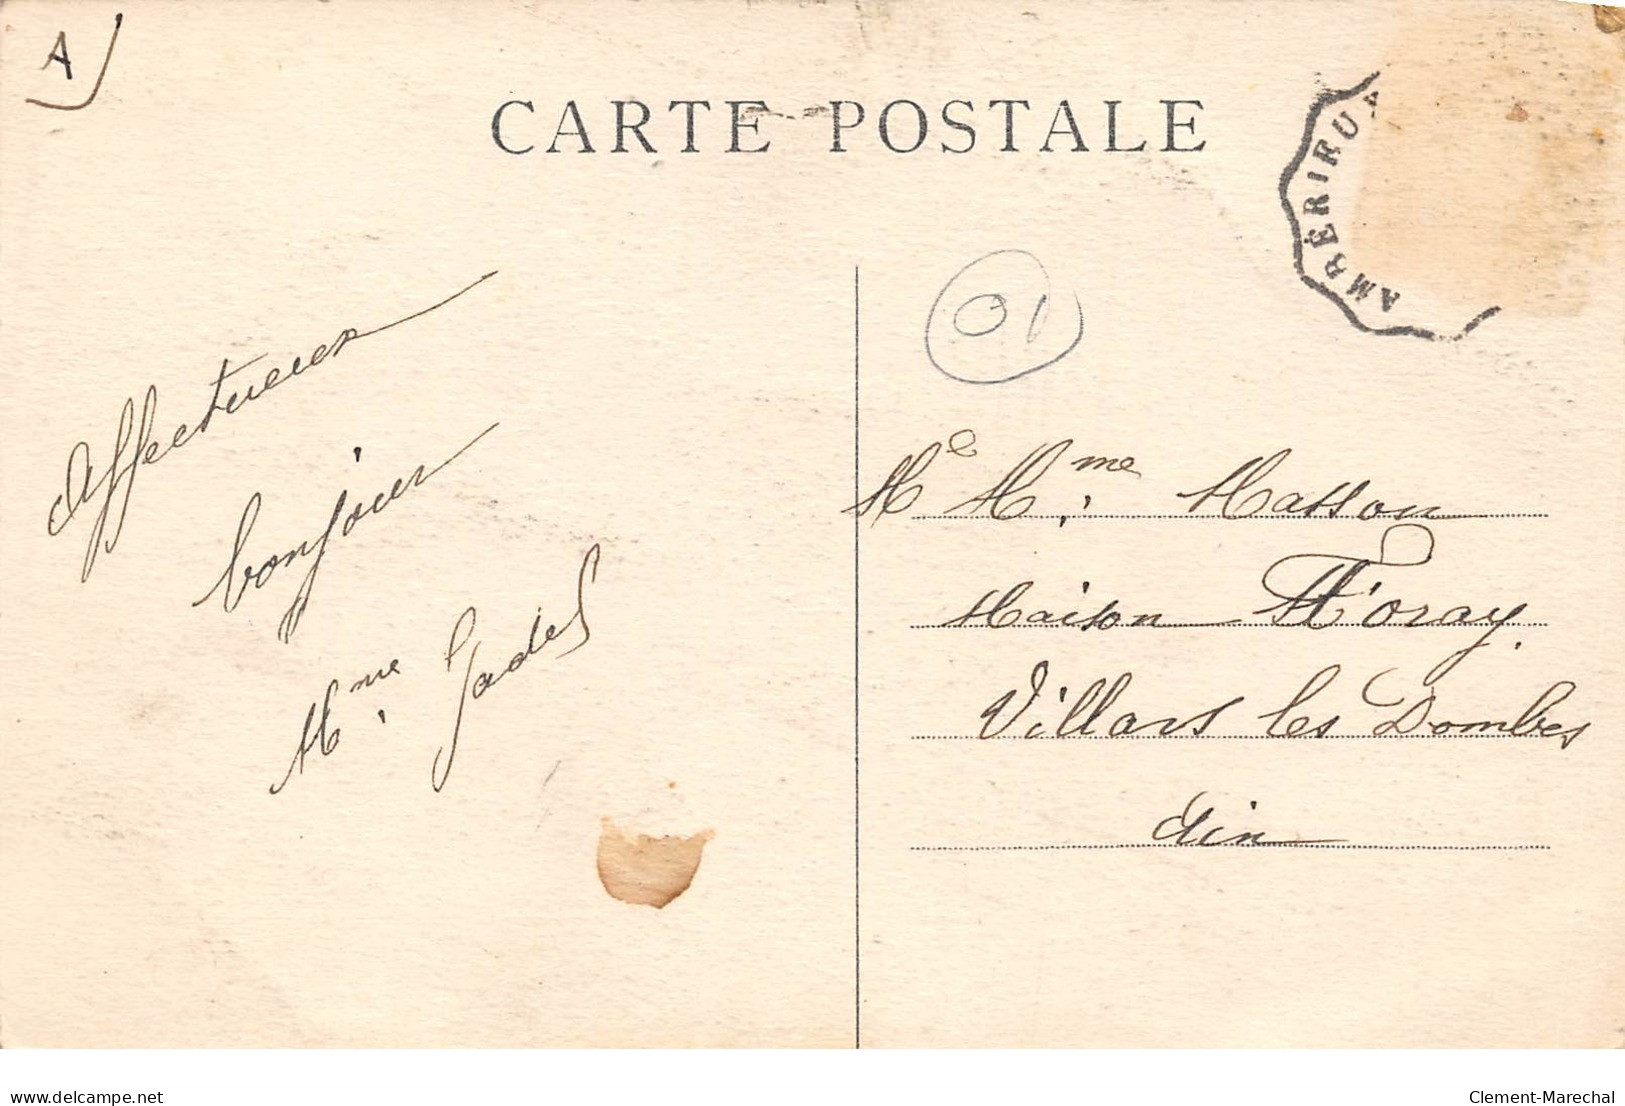 A
CARTE POSTALE
AMBÉRIEU A
01
Affectueux
bonjour
Mme
Me Mme Masson
Maison Moray
Villars les Dombes
Ain
delcampe.net
Clement-Marechal